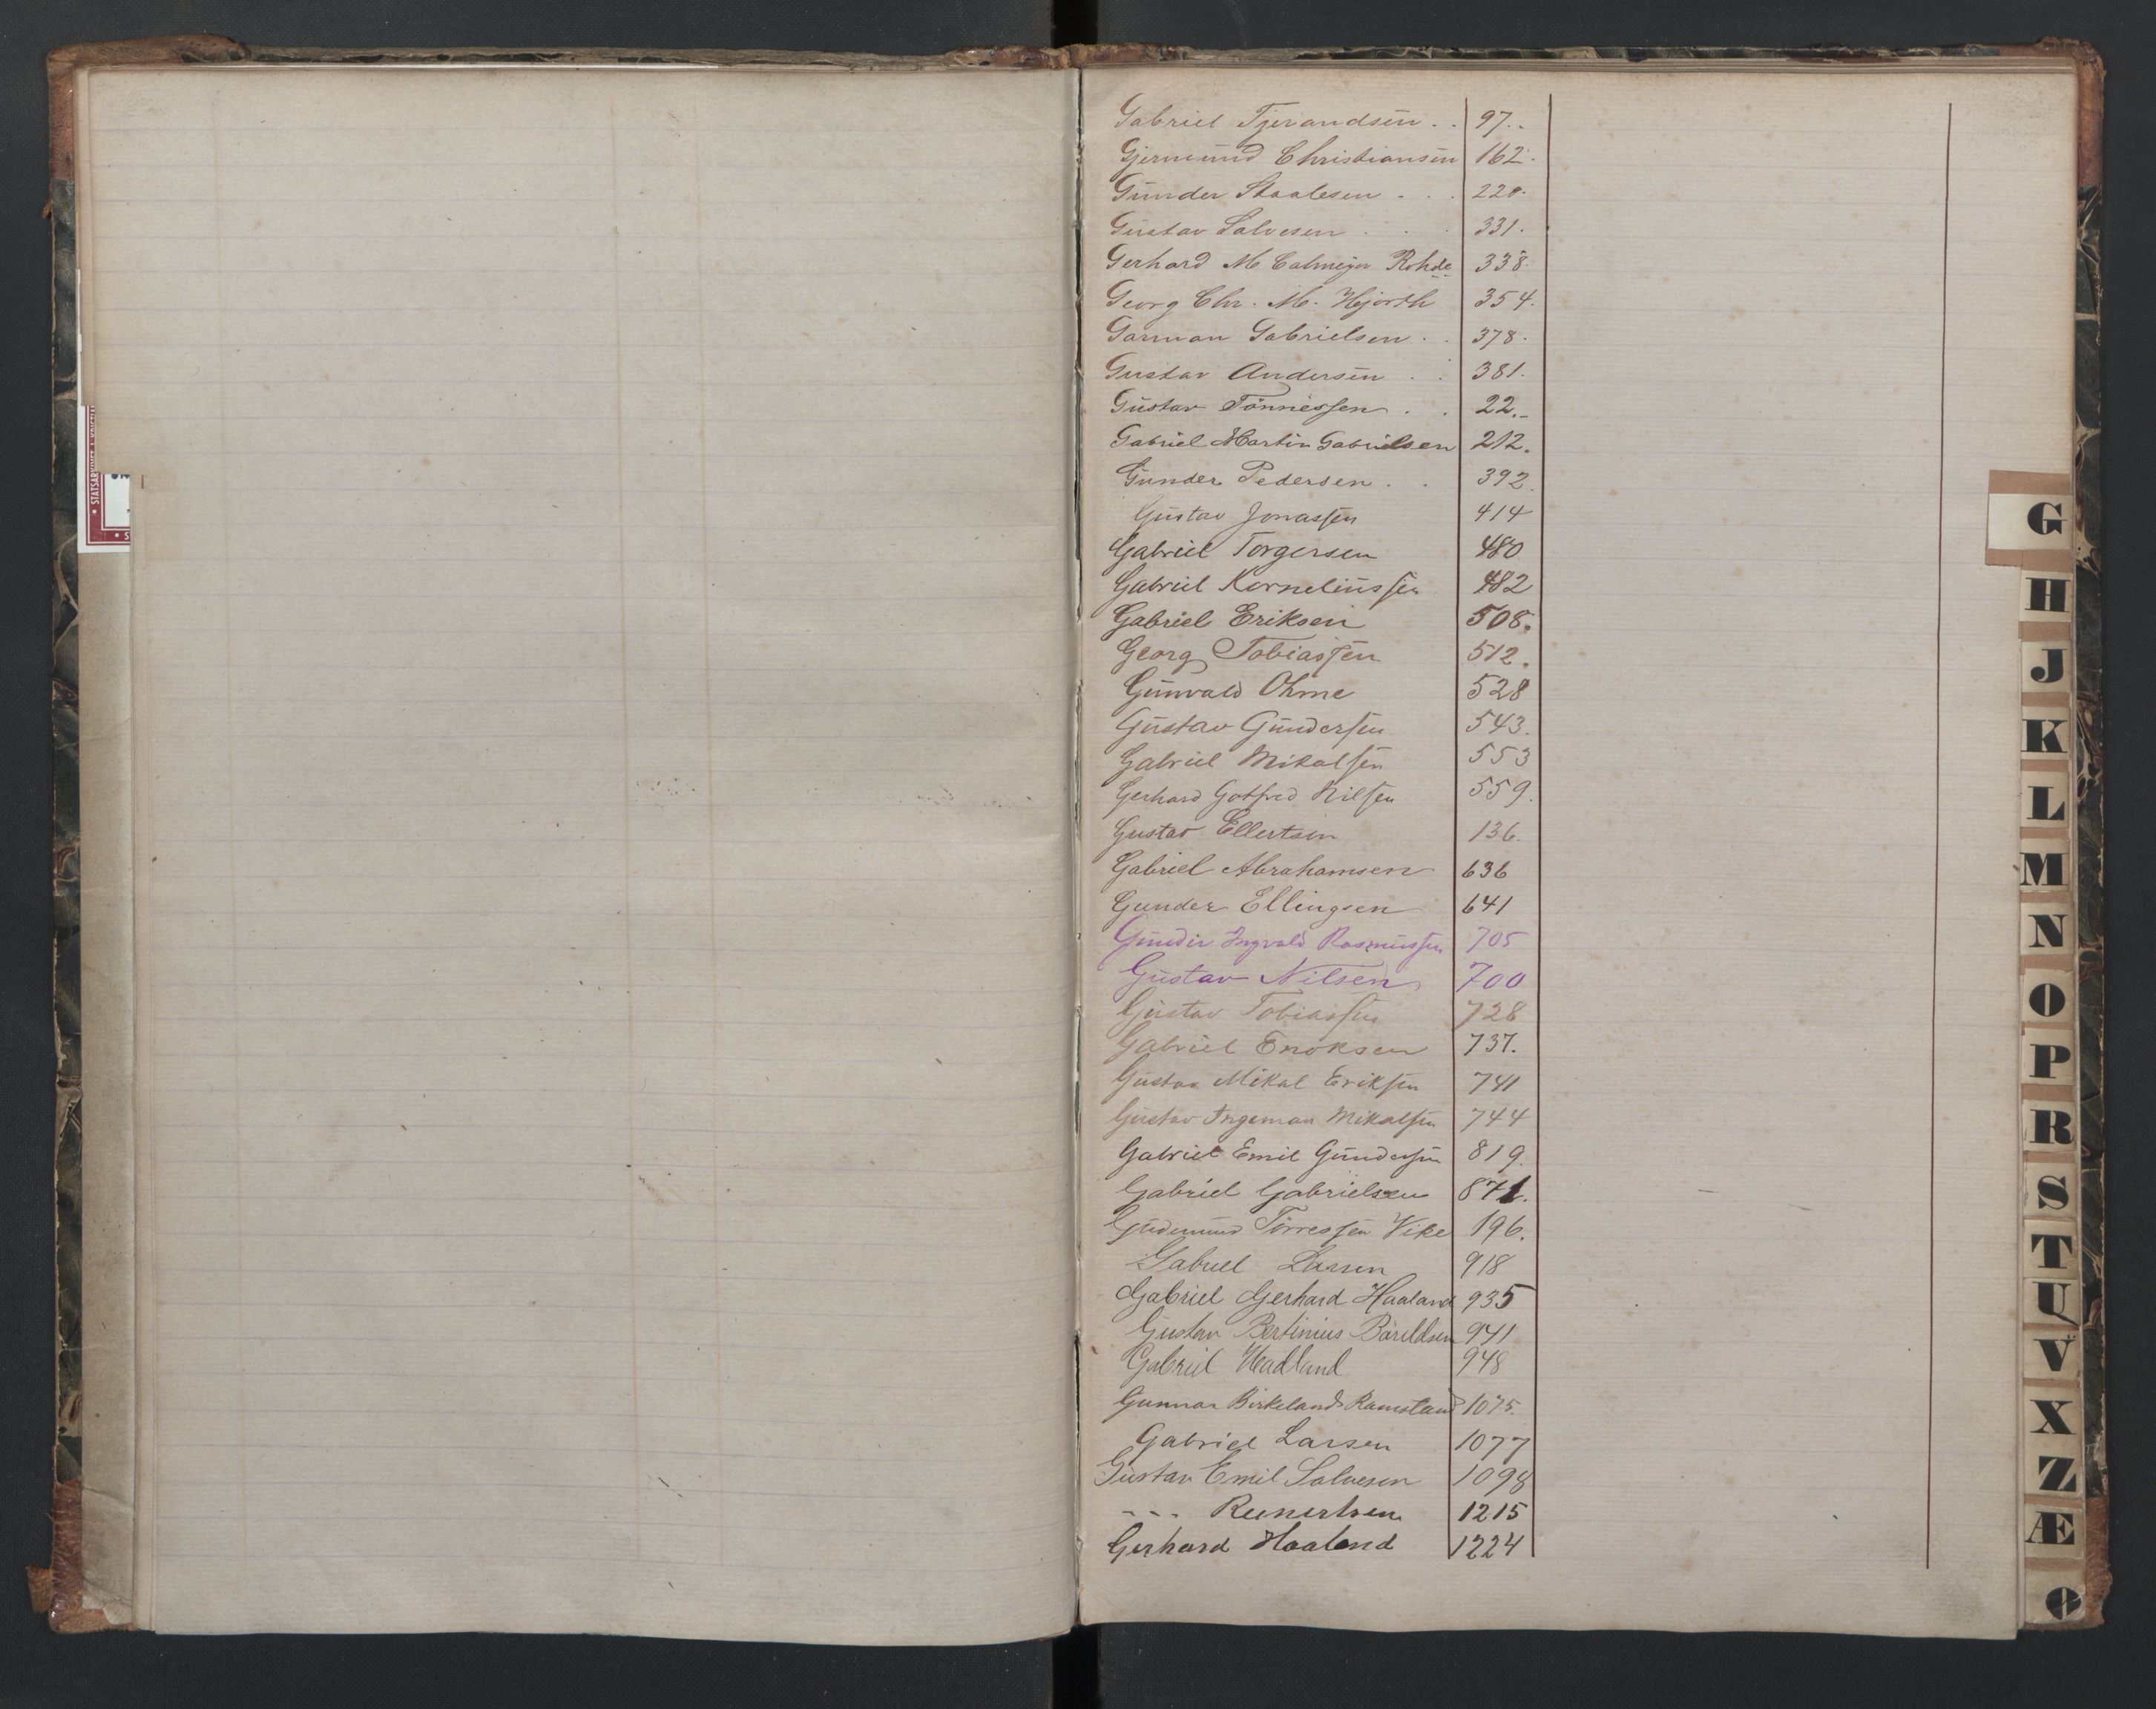 Gabriel Tjerandsen . . 97.
Gjermund Christiansen 162.
Gunder Staalesen . . . 220.
Gustav Salvesen . . . 331.
Gerhard M Calmeyer Rohde 338.
Georg Chr. M. Hjorth 354.
Garman Gabrielsen . . 378.
Gustav Andersen . . 381.
Gustav Tönnessen . . 22.
Gabriel Martin Gabrielsen 212.
Gunder Pedersen . . 392.
Gustav Jonassen 414
Gabriel Torgersen 480
Gabriel Korneliussen 482
Gabriel Eriksen 508.
Georg Tobiassen 512.
Gunvald Ohme 528
Gustav Gundersen 543.
Gabriel Mikalsen 553
Gerhard Gotfred Nilsen 559.
Gustav Ellertsen 136.
Gabriel Abrahamsen 636
Gunder Ellingsen 641
Gunder Ingvald Rasmussen 705
Gustav Nilsen 700
Gustav Tobiassen 728
Gabriel Enoksen 737.
Gustav Mikal Eriksen 741
Gustav Ingeman Mikalsen 744
Gabriel Emil Gundersen 819.
Gabriel Gabrielsen 871.
Gudmund Törressen Vike 196.
Gabriel Larsen 918
Gabriel Gerhard Haaland 935
Gustav Bertinius Bårildsen 941
Gabriel Hadland 948
Gunnar Birkeland Ramstad 1075.
Gabriel Larsen 1077
Gustav Emil Salvesen 1098
- - - Reinertsen 1215
Gerhard Haaland 1224
G
H
J
K
L
M
N
O
P
R
S
T
U
V
X
Z
Æ
Ø